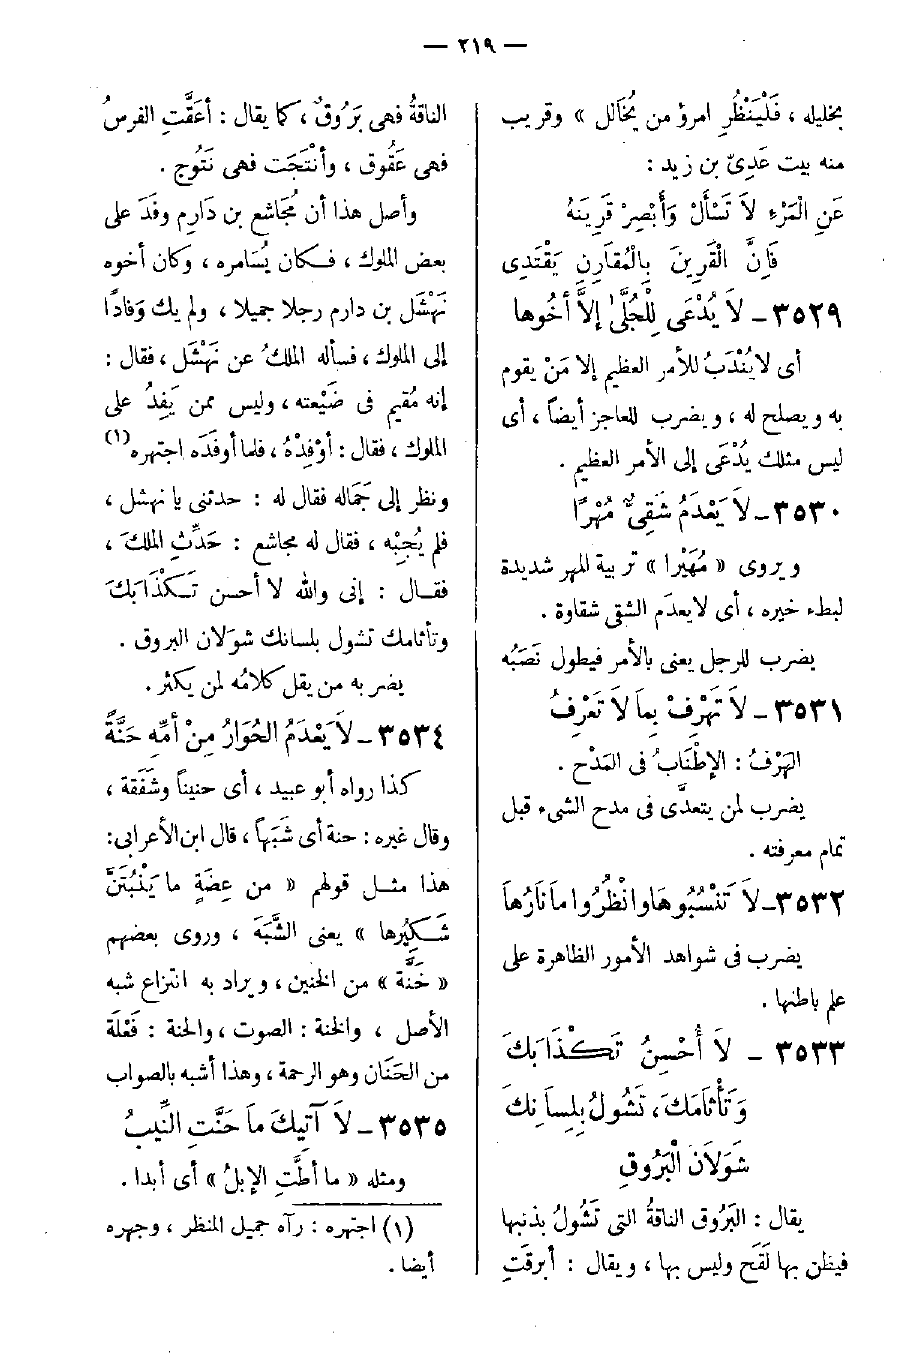 — ٢١٩ —
بخليله ، فَلْيَنْظُرِ امرؤ من يُخَالل » وقريب
منه بيت عَدِىّ بن زيد :
عَنِ الْمَرْءِ لاَ تَسْأَلْ وَأَبْصِرْ قَرِينَهُ
فَإِنَّ الْقَرِينَ بِالْمُقَارِنِ يَقْتَدِى
٣٥٢٩ – لاَ يُدْعَى لِلْجُلَّى إلاَّ أخُوها
أى لا يُنْدَبُ للأمر العظيم إلا مَنْ يقوم
به ويصلح له ، ويضرب للعاجز أيضاً ، أى
ليس مثلك يُدْعَى إلى الأمر العظيم .
٣٥٣٠ – لاَ يَعْدَمُ شَقِىٌّ مُهْرًا
ويروى « مُهَيْرا » تربية المهر شديدة
لبطء خيره ، أى لا يعدَم الشقى شقاوة .
يضرب للرجل يعنى بالأمر فيطول نَصَبُه
٣٥٣١ – لاَ تَهْرِفْ بِمَا لاَ تَعْرِفُ
الهَرْفُ : الإطْنَابُ فى المَدْح .
يضرب لمن يتعدَّى فى مدح الشىء قبل
تمام معرفته .
٣٥٣٢ – لاَ تَنْسُبُوهَا وانْظُرُوا مَا نَارُهَا
يضرب فى شواهد الأمور الظاهرة على
علم باطنها .
٣٥٣٣ – لاَ أُحْسِنُ تَكْذَابَكَ
وَتَأْثَامَكَ، تَشُولُ بِلِسَانِكَ
شَوَلاَنَ الْبَرُوقِ
يقال : البَرُوق الناقةُ التى تَشُولُ بذنبها
فيظن بها لَقَح وليس بها ، ويقال : أبرقَتِ
الناقةُ فهى بَرُوقٌ، كما يقال : أعَقَّتِ الفرسُ
فهى عَقُوق ، وأنْتَجَت فهى نَتُوج .
وأصل هذا أن مُجَاشع بن دَارِم وفَدَ على
بعض الملوك ، فكان يُسَامره ، وكان أخوه
نَهْشَل بن دارم رجلا جميلا ، ولم يك وَفادًا
إلى الملوك ، فسأله الملكُ عن نَهْشَل ، فقال :
إنه مُقيم فى ضَيْعته ، وليس ممن يَفِدُ على
الملوك ، فقال : أوْفِدْهُ ، فلما أوفَدَه اجتهره(١)
ونظر إلى جَمَاله فقال له : حدثنى يا نهشل ،
فلم يُجِبْه ، فقال له مجاشع : حَدِّثِ الملكَ ،
فقال : إنى والله لا أحسن تَكْذَابَكَ
وتأثامك تشول بلسانك شَوَلان البروق .
يضربه من يقل كلامُه لمن يكثر .
٣٥٣٤ – لاَ يَعْدَمُ الحُوَارُ مِنْ أمِّهِ حَنَّةً
كذا رواه أبو عبيد ، أى حنيناً وشَفَقة ،
وقال غيره : حنة أى شَبَهاً ، قال ابن الأعرابى :
هذا مثل قولهم « من عِضَةٍ ما يَنْبُتَنَّ
شَكِيُرها » يعنى الشَّبَهَ ، وروى بعضهم
« خَنَّة » من الخنين ، ويراد به انتزاع شبه
الأصل ، والخنة : الصوت ، والحنة : فَعْلَة
من الحَنَان وهو الرحمة ، وهذا أشبه بالصواب
٣٥٣٥ – لاَ آتِيكَ مَا حَنَّتِ النِّيبُ
ومثله « ما أطَّتِ الإبلُ » أى أبدا .
(١) اجتهره : رآه جميل المنظر ، وجهره
أيضا .